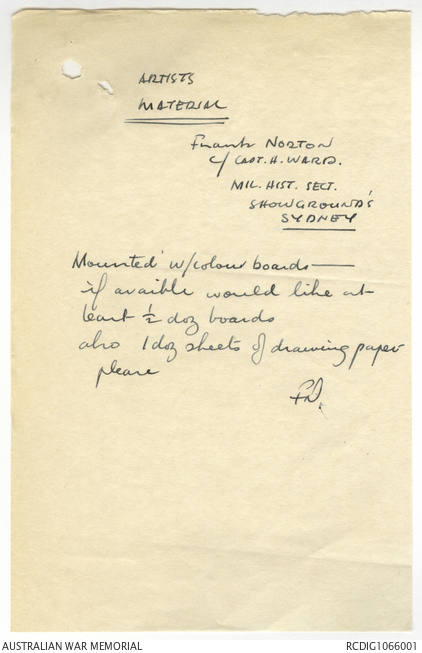 ARTISTS
MATERIAL
Frank NORTON
c/ CAPT. H. WARD.
MIL. HIST. SECT.
SHOWGROUND'S
SYDNEY
Mounted w/colour boards —
if availble would like at
least ½ doz boards
also 1 doz sheets of drawing paper
please
FN.
AUSTRALIAN WAR MEMORIAL
RCDIG1066001